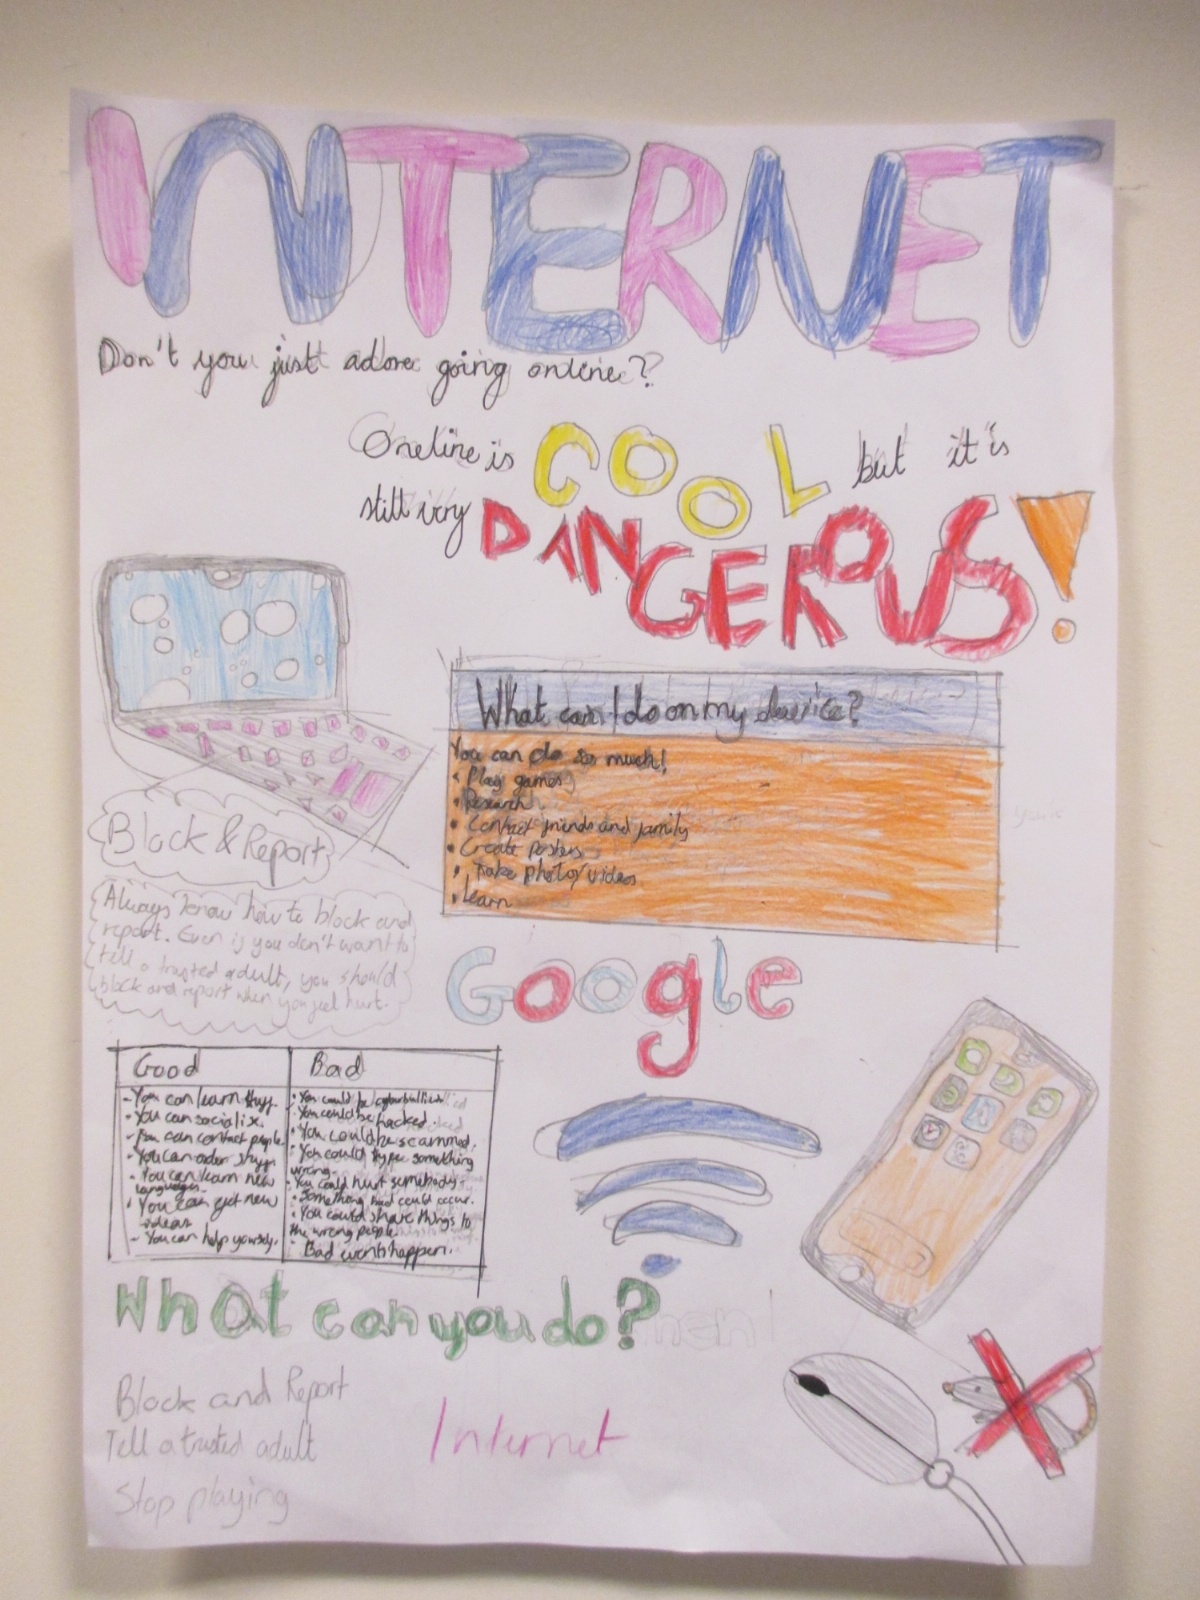 INTERNET
Don't you just adore going online??
Oneline is COOL but it is
still very DANGEROUS!
What can I do on my device?
You can do so much!
• Play games
• Research
• Contact friends and family
• Create posters
• Take photo/videos
• Learn
Block & Report
Always know how to block and
report. Even if you don't want to
tell a trusted adult, you should
block and report when you feel hurt.
Google
Good
- You can learn stuff.
- You can socialise.
- You can contact people.
- You can order stuff.
- You can learn new
languages.
• You can get new
ideas
- You can help yourself.
Bad
• You could be cyberbullied
• You could be hacked.
• You could be scammed.
• You could type something
wrong.
• You could hurt somebody.
• Something bad could occur.
• You could share things to
the wrong people.
• Bad events happen.
What can you do?
Block and Report
Tell a trusted adult
Stop playing
Internet